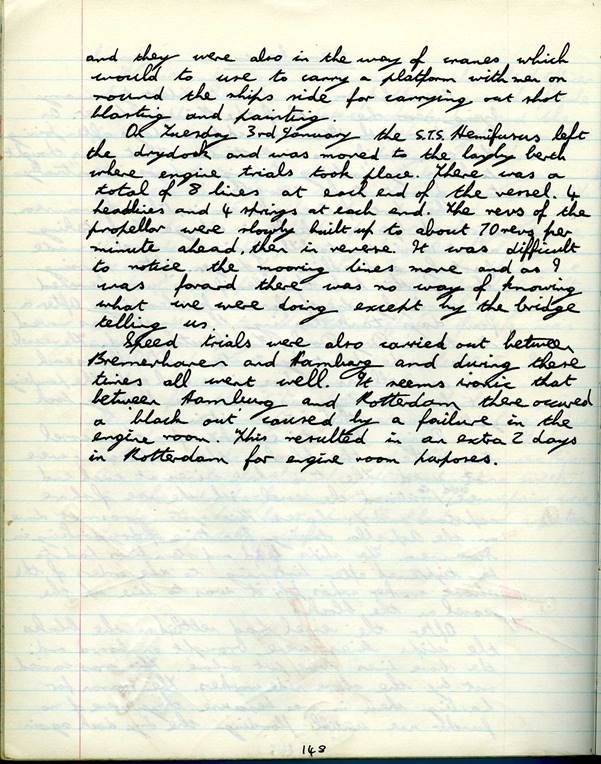 and they were also in the way of cranes which
would to use to carry a platform with men on
round the ships side for carrying out shot
blasting and painting.
On Tuesday 3rd January the S.T.S. Hemifusus left
the drydock and was moved to the layby berth
where engine trials took place. There was a
total of 8 lines at each end of the vessel. 4
headlines and 4 springs at each end. The revs of the
propellor were slowly built up to about 70 revs per
minute ahead, then in reverse. It was difficult
to notice the mooring lines move and as I
was forard there was no way of knowing
what we were doing except by the bridge
telling us.
Speed trials were also carried out between
Bremerhaven and Hamburg and during these
times all went well. It seems ironic that
between Hamburg and Rotterdam there occured
a 'black out' caused by a failure in the
engine room. This resulted in an extra 2 days
in Rotterdam for engine room purposes.
148